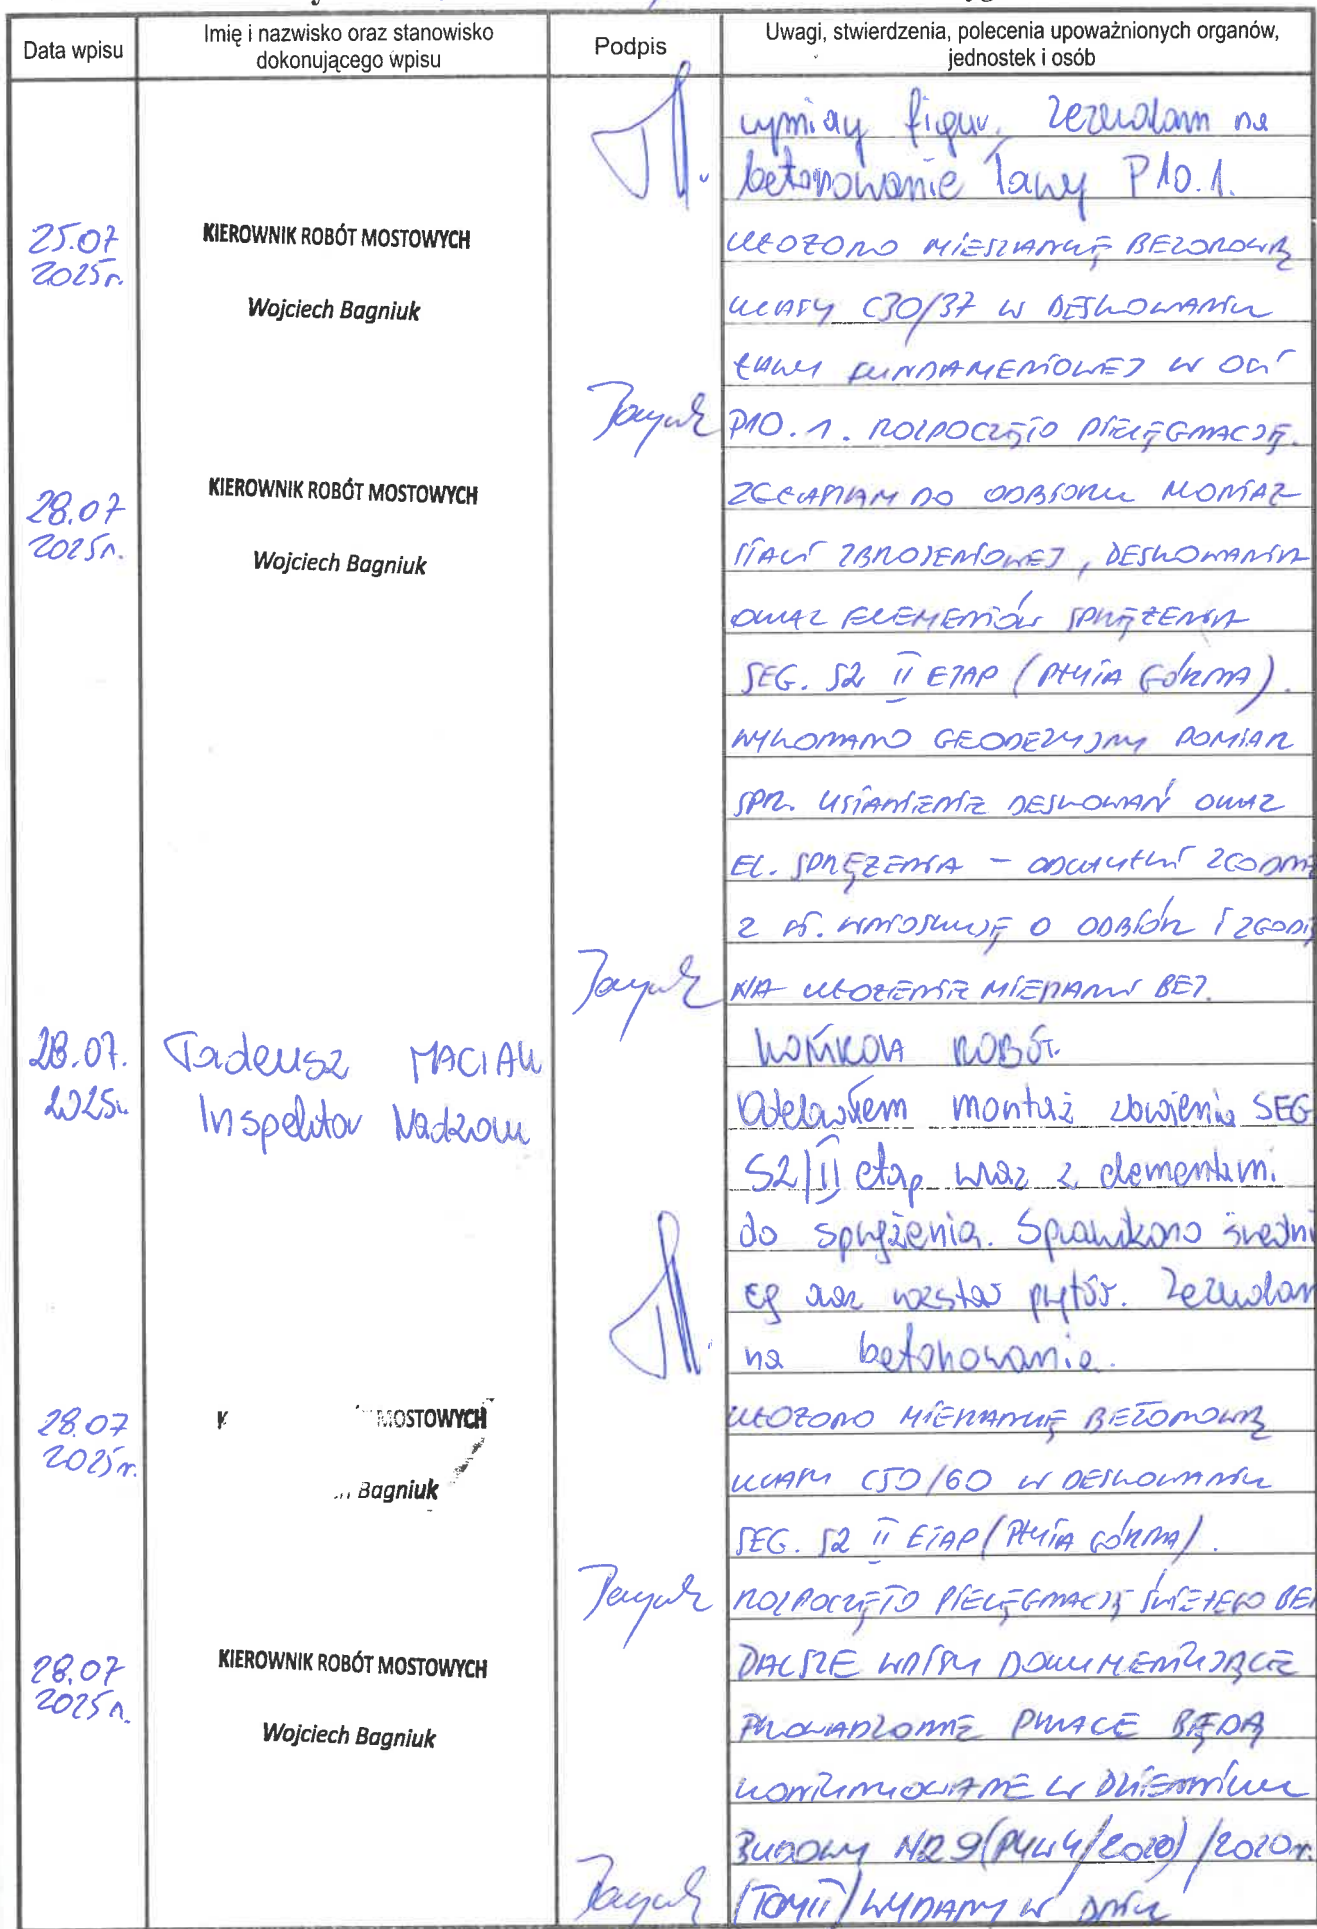 Data wpisu
Imię i nazwisko oraz stanowisko
dokonującego wpisu
Podpis
Uwagi, stwierdzenia, polecenia upoważnionych organów,
jednostek i osób
wymiary figur. Zezwalam na
betonowanie ławy P10.1.
25.07
2025r.
KIEROWNIK ROBÓT MOSTOWYCH
Wojciech Bagniuk
UŁOŻONO MIESZANKĘ BETONOWĄ
KLASY C30/37 W DESKOWANIU
ŁAWY FUNDAMENTOWEJ W OSI
P10.1. ROZPOCZĘTO PIELĘGNACJĘ.
28.07
2025r.
KIEROWNIK ROBÓT MOSTOWYCH
Wojciech Bagniuk
ZGŁASZAM DO ODBIORU MONTAŻ
STALI ZBROJENIOWEJ, DESKOWANIA
ORAZ ELEMENTÓW SPRĘŻENIA
SEG. S2 II ETAP (PŁYTA GÓRNA).
WYKONANO GEODEZYJNY POMIAR
SPR. USTAWIENIE DESKOWAŃ ORAZ
EL. SPRĘŻENIA - ODCHYŁKI ZGODNE
Z WNIOSKUJĘ O ODBIÓR I ZGODĘ
NA UŁOŻENIE MIESZANKI BET.
28.07.
2025r.
Tadeusz MACIAK
Inspektor Nadzoru
KOŃCOWA ROBÓT.
Odebrałem montaż zbrojenia SEG
S2/II etap wraz z elementami
do sprężenia. Sprawdzono średni
cę oraz rozstaw prętów. Zezwalam
na betonowanie.
28.07
2025r.
K MOSTOWYCH
Bagniuk
UŁOŻONO MIESZANKĘ BETONOWĄ
KLASY C50/60 W DESKOWANIU
SEG. S2 II ETAP (PŁYTA GÓRNA).
ROZPOCZĘTO PIELĘGNACJĘ ŚWIEŻEGO BET
28.07
2025r.
KIEROWNIK ROBÓT MOSTOWYCH
Wojciech Bagniuk
DALSZE WPISY DOKUMENTUJĄCE
PROWADZONE PRACE BĘDĄ
KONTYNUOWANE W DZIENNIKU
BUDOWY NR 9(P4W4/2020)/2020r.
(TOM II) WYDANY W DNIU